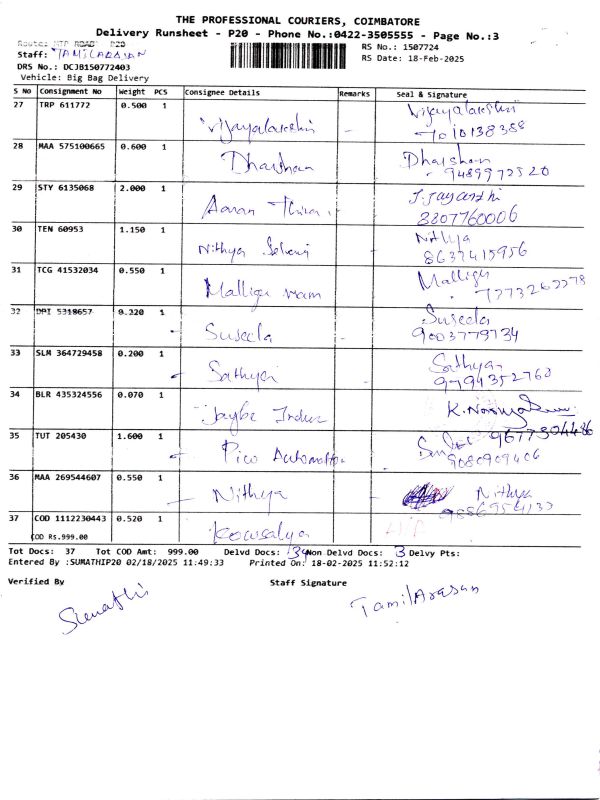 THE PROFESSIONAL COURIERS, COIMBATORE
Delivery Runsheet - P20 - Phone No.:0422-3505555 - Page No.:3
Route: MTP ROAD P20
Staff: TAMILARASAN
RS No.: 1507724
DRS No.: DCJB150772403
RS Date: 18-Feb-2025
Vehicle: Big Bag Delivery
S No Consignment No Weight PCS Consignee Details Remarks Seal & Signature
27 TRP 611772 0.500 1 Vijayalakshmi - Vijayalakshmi
7010138388
28 MAA 575100665 0.600 1 Dharshan Dharshan
9489972520
29 STY 6135068 2.000 1 J. Jayanthi
8807760006
30 TEN 60953 1.150 1 Nithya Nithya
8637415956
31 TCG 41532034 0.550 1 Malliga mam Malliga
32 DPI 5318657 0.320 1 Suseela Suseela
9003779734
33 SLM 364729458 0.200 1 Sathya Sathya
9794352768
34 BLR 435324556 0.070 1 K.
35 TUT 205430 1.600 1 Pico 9677504486
9080909406
36 MAA 269544607 0.550 1 Nithya Nithya
37 COD 1112230443 0.520 1 Kowsalya
COD Rs.999.00
Tot Docs: 37 Tot COD Amt: 999.00 Delvd Docs: 34 Non Delvd Docs: 3 Delvy Pts:
Entered By :SUMATHIP20 02/18/2025 11:49:33 Printed On: 18-02-2025 11:52:12
Verified By Staff Signature
Sumathi TamilArasan